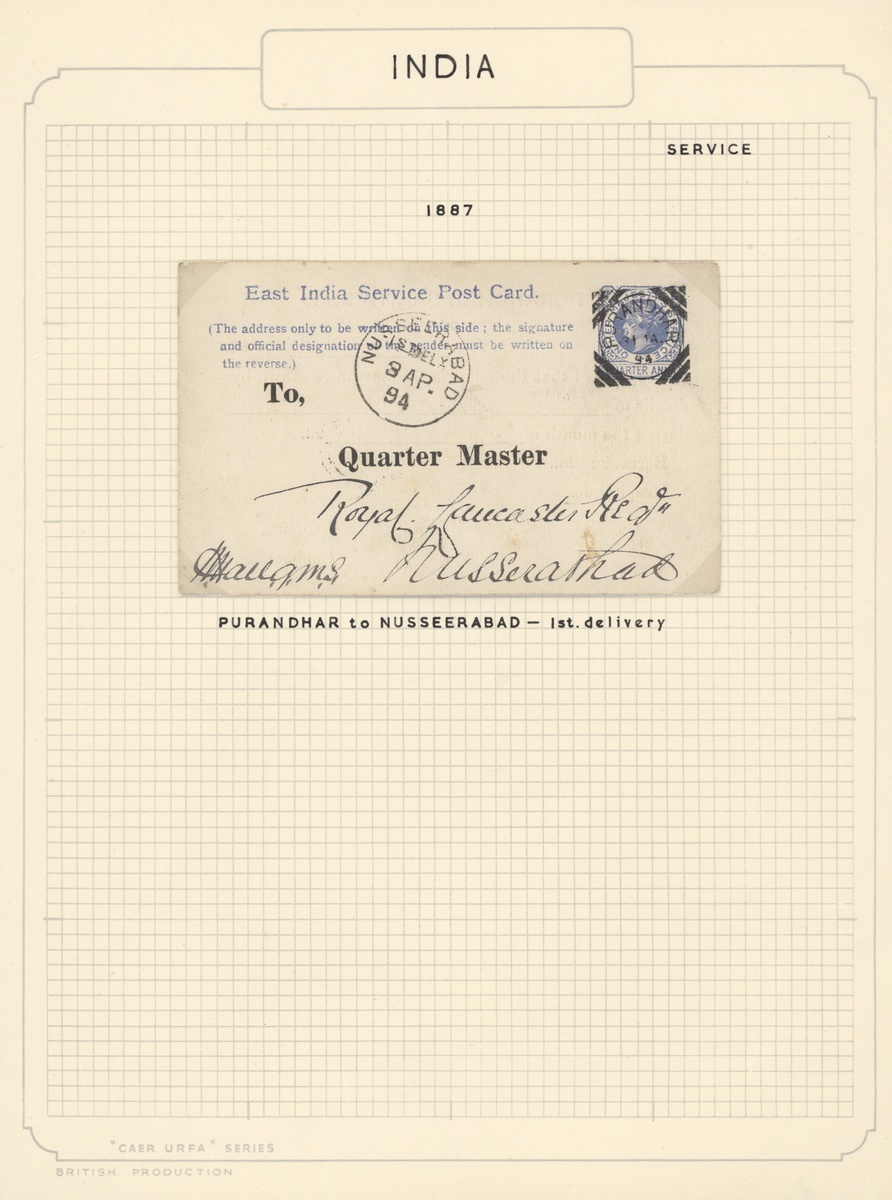 INDIA
SERVICE
1887
East India Service Post Card.
(The address only to be written on this side ; the signature
and official designation of the sender must be written on
the reverse.)
NUSSEERABAD
1ST DELY
3 AP.
94
PURANDHAR
94
QUARTER ANNA
To,
Quarter Master
Royal Lancaster Regt
Nusserabad
PURANDHAR to NUSSEERABAD — 1st. delivery
"CAER URFA" SERIES
BRITISH PRODUCTION